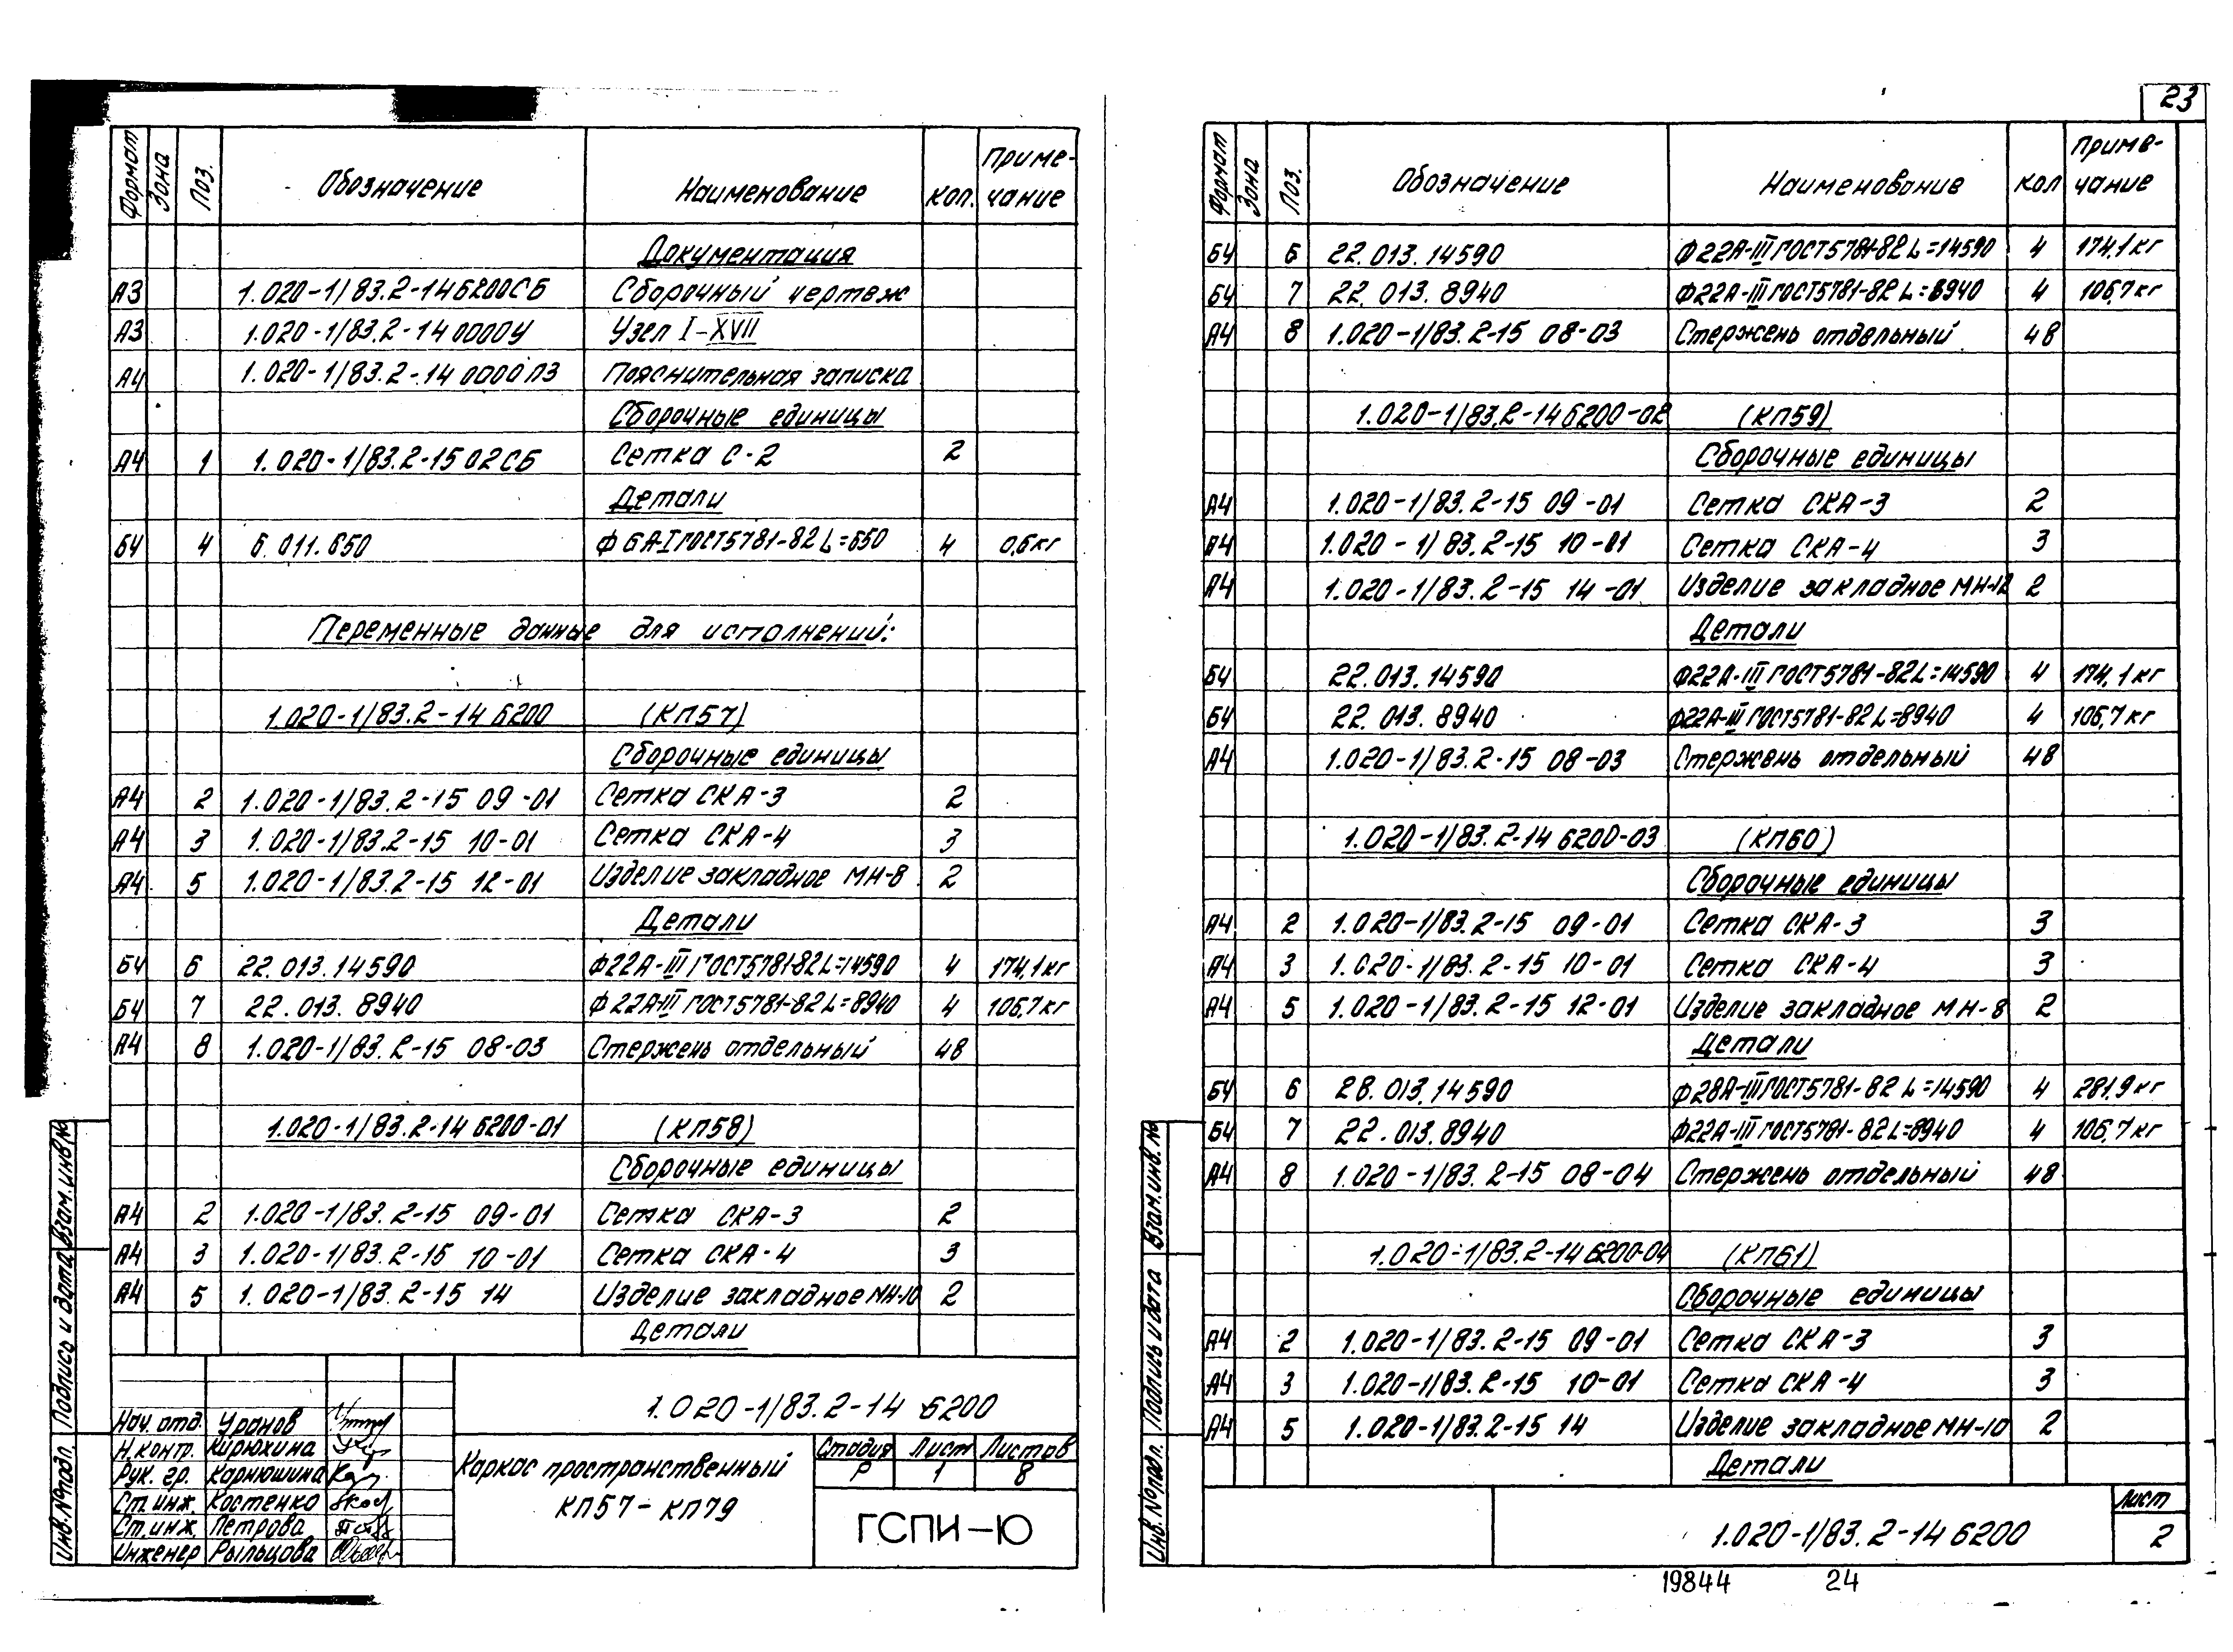 Формат Зона Поз. Обозначение Наименование Кол. Приме-
чание
Документация
А3 1.020-1/83.2-14 6200СБ Сборочный чертеж
А3 1.020-1/83.2-14 0000У Узел I-XVII
А4 1.020-1/83.2-14 0000ПЗ Пояснительная записка
Сборочные единицы
А4 1 1.020-1/83.2-15 02СБ Сетка С-2 2
Детали
БЧ 4 6.011.650 Ф6А-I ГОСТ5781-82 L=650 4 0,6кг
Переменные данные для исполнений:
1.020-1/83.2-14 6200 (КП57)
Сборочные единицы
А4 2 1.020-1/83.2-15 09-01 Сетка СКА-3 2
А4 3 1.020-1/83.2-15 10-01 Сетка СКА-4 3
А4 5 1.020-1/83.2-15 12-01 Изделие закладное МН-8 2
Детали
БЧ 6 22.013.14590 Ф22А-III ГОСТ5781-82 L=14590 4 174,1кг
БЧ 7 22.013.8940 Ф22А-III ГОСТ5781-82 L=8940 4 106,7кг
А4 8 1.020-1/83.2-15 08-03 Стержень отдельный 48
1.020-1/83.2-14 6200-01 (КП58)
Сборочные единицы
А4 2 1.020-1/83.2-15 09-01 Сетка СКА-3 2
А4 3 1.020-1/83.2-15 10-01 Сетка СКА-4 3
А4 5 1.020-1/83.2-15 14 Изделие закладное МН-10 2
Детали
1.020-1/83.2-14 6200
Нач. отд. Уранов
Н.контр. Кирюхина
Рук. гр. Карнюшина
Ст. инж. Костенко
Ст. инж. Петрова
Инженер Рыльцова
Каркас пространственный
КП57-КП79
Стадия Лист Листов
Р 1 8
ГСПИ-Ю
Инв.№подл. Подпись и дата Взам.инв.№
23
Формат Зона Поз. Обозначение Наименование Кол Приме-
чание
БЧ 6 22.013.14590 Ф22А-III ГОСТ5781-82 L=14590 4 174,1кг
БЧ 7 22.013.8940 Ф22А-III ГОСТ5781-82 L=8940 4 106,7кг
А4 8 1.020-1/83.2-15 08-03 Стержень отдельный 48
1.020-1/83.2-14 6200-02 (КП59)
Сборочные единицы
А4 1.020-1/83.2-15 09-01 Сетка СКА-3 2
А4 1.020-1/83.2-15 10-01 Сетка СКА-4 3
А4 1.020-1/83.2-15 14-01 Изделие закладное МН-12 2
Детали
БЧ 22.013.14590 Ф22А-III ГОСТ5781-82 L=14590 4 174,1кг
БЧ 22.013.8940 Ф22А-III ГОСТ5781-82 L=8940 4 106,7кг
А4 1.020-1/83.2-15 08-03 Стержень отдельный 48
1.020-1/83.2-14 6200-03 (КП60)
Сборочные единицы
А4 2 1.020-1/83.2-15 09-01 Сетка СКА-3 3
А4 3 1.020-1/83.2-15 10-01 Сетка СКА-4 3
А4 5 1.020-1/83.2-15 12-01 Изделие закладное МН-8 2
Детали
БЧ 6 28.013.14590 Ф28А-III ГОСТ5781-82 L=14590 4 281,9кг
БЧ 7 22.013.8940 Ф22А-III ГОСТ5781-82 L=8940 4 106,7кг
А4 8 1.020-1/83.2-15 08-04 Стержень отдельный 48
1.020-1/83.2-14 6200-04 (КП61)
Сборочные единицы
А4 2 1.020-1/83.2-15 09-01 Сетка СКА-3 3
А4 3 1.020-1/83.2-15 10-01 Сетка СКА-4 3
А4 5 1.020-1/83.2-15 14 Изделие закладное МН-10 2
Детали
1.020-1/83.2-14 6200
Лист
2
Инв.№подл. Подпись и дата Взам.инв.№
19844 24